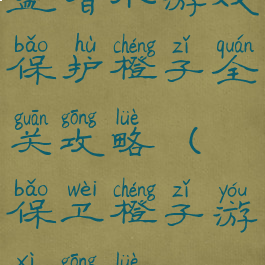 bǎo hù chéng zǐ quán
保护橙子全
guān gōng lüè
关攻略（
bǎo wèi chéng zǐ yóu
保卫橙子游
xì gōng lüè